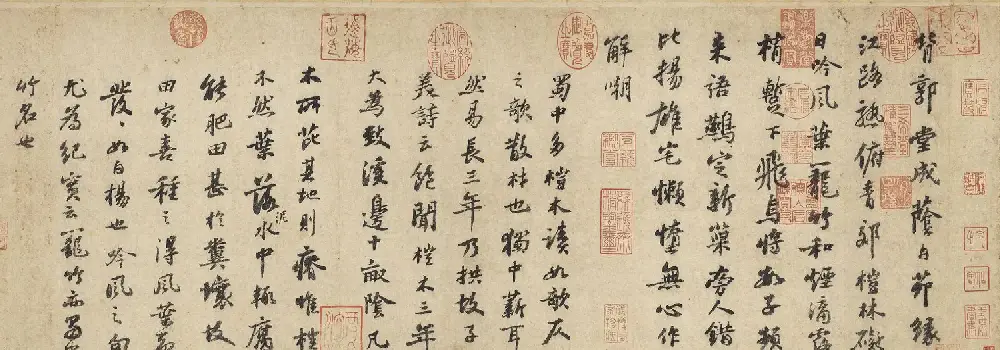 背郭堂成蔭白茅緣
江路熟俯青郊榿林礙
日吟風葉籠竹和煙滴露
梢暫下飛烏將數子頻
來語鷰定新巢旁人錯
比揚雄宅懶惰無心作
解嘲
蜀中多榿木讀如欹仄
之欹散材也獨中薪耳
然易長三年乃拱故子
美詩云飽聞榿木三年
大為致溪邊十畝陰凡
木所芘其地則瘠唯榿
不然葉落泥水中輒腐
能肥田甚於糞壤故
田家喜種之得風葉聲
發〻如白楊也吟風之句
尤為紀實云籠竹亦蜀
竹名也